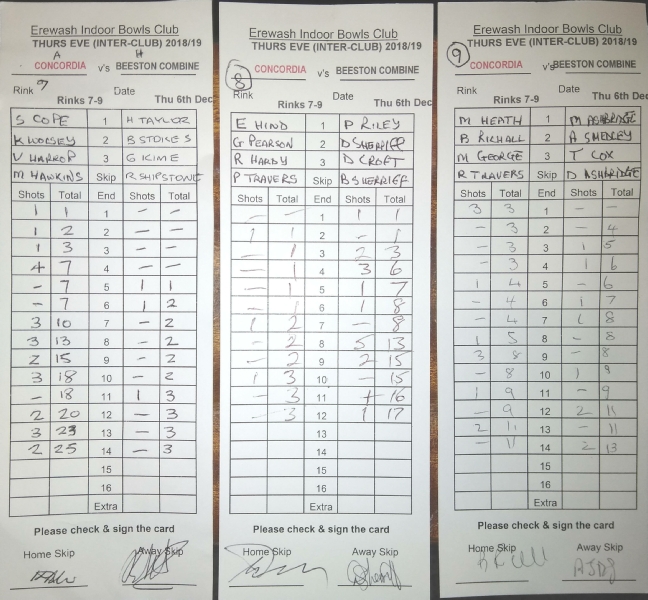 Erewash Indoor Bowls Club
THURS EVE (INTER-CLUB) 2018/19
A H
CONCORDIA v's BEESTON COMBINE
Rink 7 Date
Rinks 7-9 Thu 6th Dec
S COPE 1 H TAYLOR
K WORSEY 2 B STOKES
V HARROP 3 G KIME
M HAWKINS Skip R SHIPSTONE
Shots Total End Shots Total
1 1 1 - -
1 2 2 - -
1 3 3 - -
4 7 4 - -
- 7 5 1 1
- 7 6 1 2
3 10 7 - 2
3 13 8 - 2
2 15 9 - 2
3 18 10 - 2
- 18 11 1 3
2 20 12 - 3
3 23 13 - 3
2 25 14 - 3
15
16
Extra
Please check & sign the card
Home Skip Away Skip
Erewash Indoor Bowls Club
THURS EVE (INTER-CLUB) 2018/19
8 CONCORDIA v's BEESTON COMBINE
Rink Date
Rinks 7-9 Thu 6th Dec
E HIND 1 P RILEY
G PEARSON 2 D SHERRIFF
R HARDY 3 D CROFT
P TRAVERS Skip B SHERRIFF
Shots Total End Shots Total
- - 1 1 1
1 1 2 - 1
- 1 3 2 3
- 1 4 3 6
- 1 5 1 7
- 1 6 1 8
1 2 7 - 8
- 2 8 5 13
- 2 9 2 15
1 3 10 - 15
- 3 11 1 16
- 3 12 1 17
13
14
15
16
Extra
Please check & sign the card
Home Skip Away Skip
Erewash Indoor Bowls Club
THURS EVE (INTER-CLUB) 2018/19
9 CONCORDIA v's BEESTON COMBINE
Rink Date
Rinks 7-9 Thu 6th Dec
M HEATH 1 M ASHBRIDGE
B RICHALL 2 A SMEDLEY
M GEORGE 3 T COX
R TRAVERS Skip D ASHBRIDGE
Shots Total End Shots Total
3 3 1 - -
- 3 2 - 4
- 3 3 1 5
- 3 4 1 6
1 4 5 - 6
- 4 6 1 7
- 4 7 1 8
1 5 8 - 8
3 8 9 - 8
- 8 10 1 9
1 9 11 - 9
- 9 12 2 11
2 11 13 - 11
- 11 14 2 13
15
16
Extra
Please check & sign the card
Home Skip Away Skip